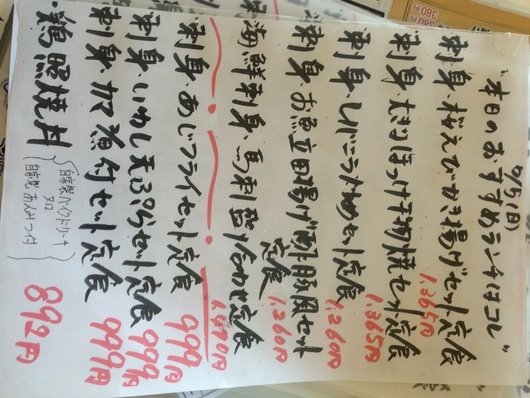 "本日のおすすめランチはコレ"
刺身・桜えびかき揚げセット定食 1,365円
刺身・大判ほっけ干物焼セット定食 1,365円
刺身・レバニラ炒めセット定食 1,260円
刺身・お魚立田揚げ油淋風セット定食 1,260円
海鮮刺身・馬刺盛り合わせ定食 1,470円
刺身・あじフライセット定食 999円
刺身・いわし天ぷらセット定食 999円
刺身・カマ煮付セット定食 999円
・鶏照焼丼 892円
自家製ハイクドリーチ
又は
自家製あんみつ付
380円
380円